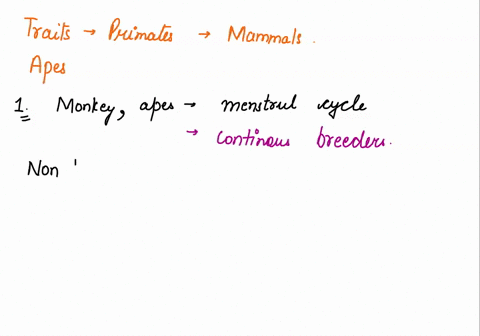 Traits → Primates → Mammals.
Apes
1. Monkey, apes → menstrul cycle
→ continous breeders.
Non